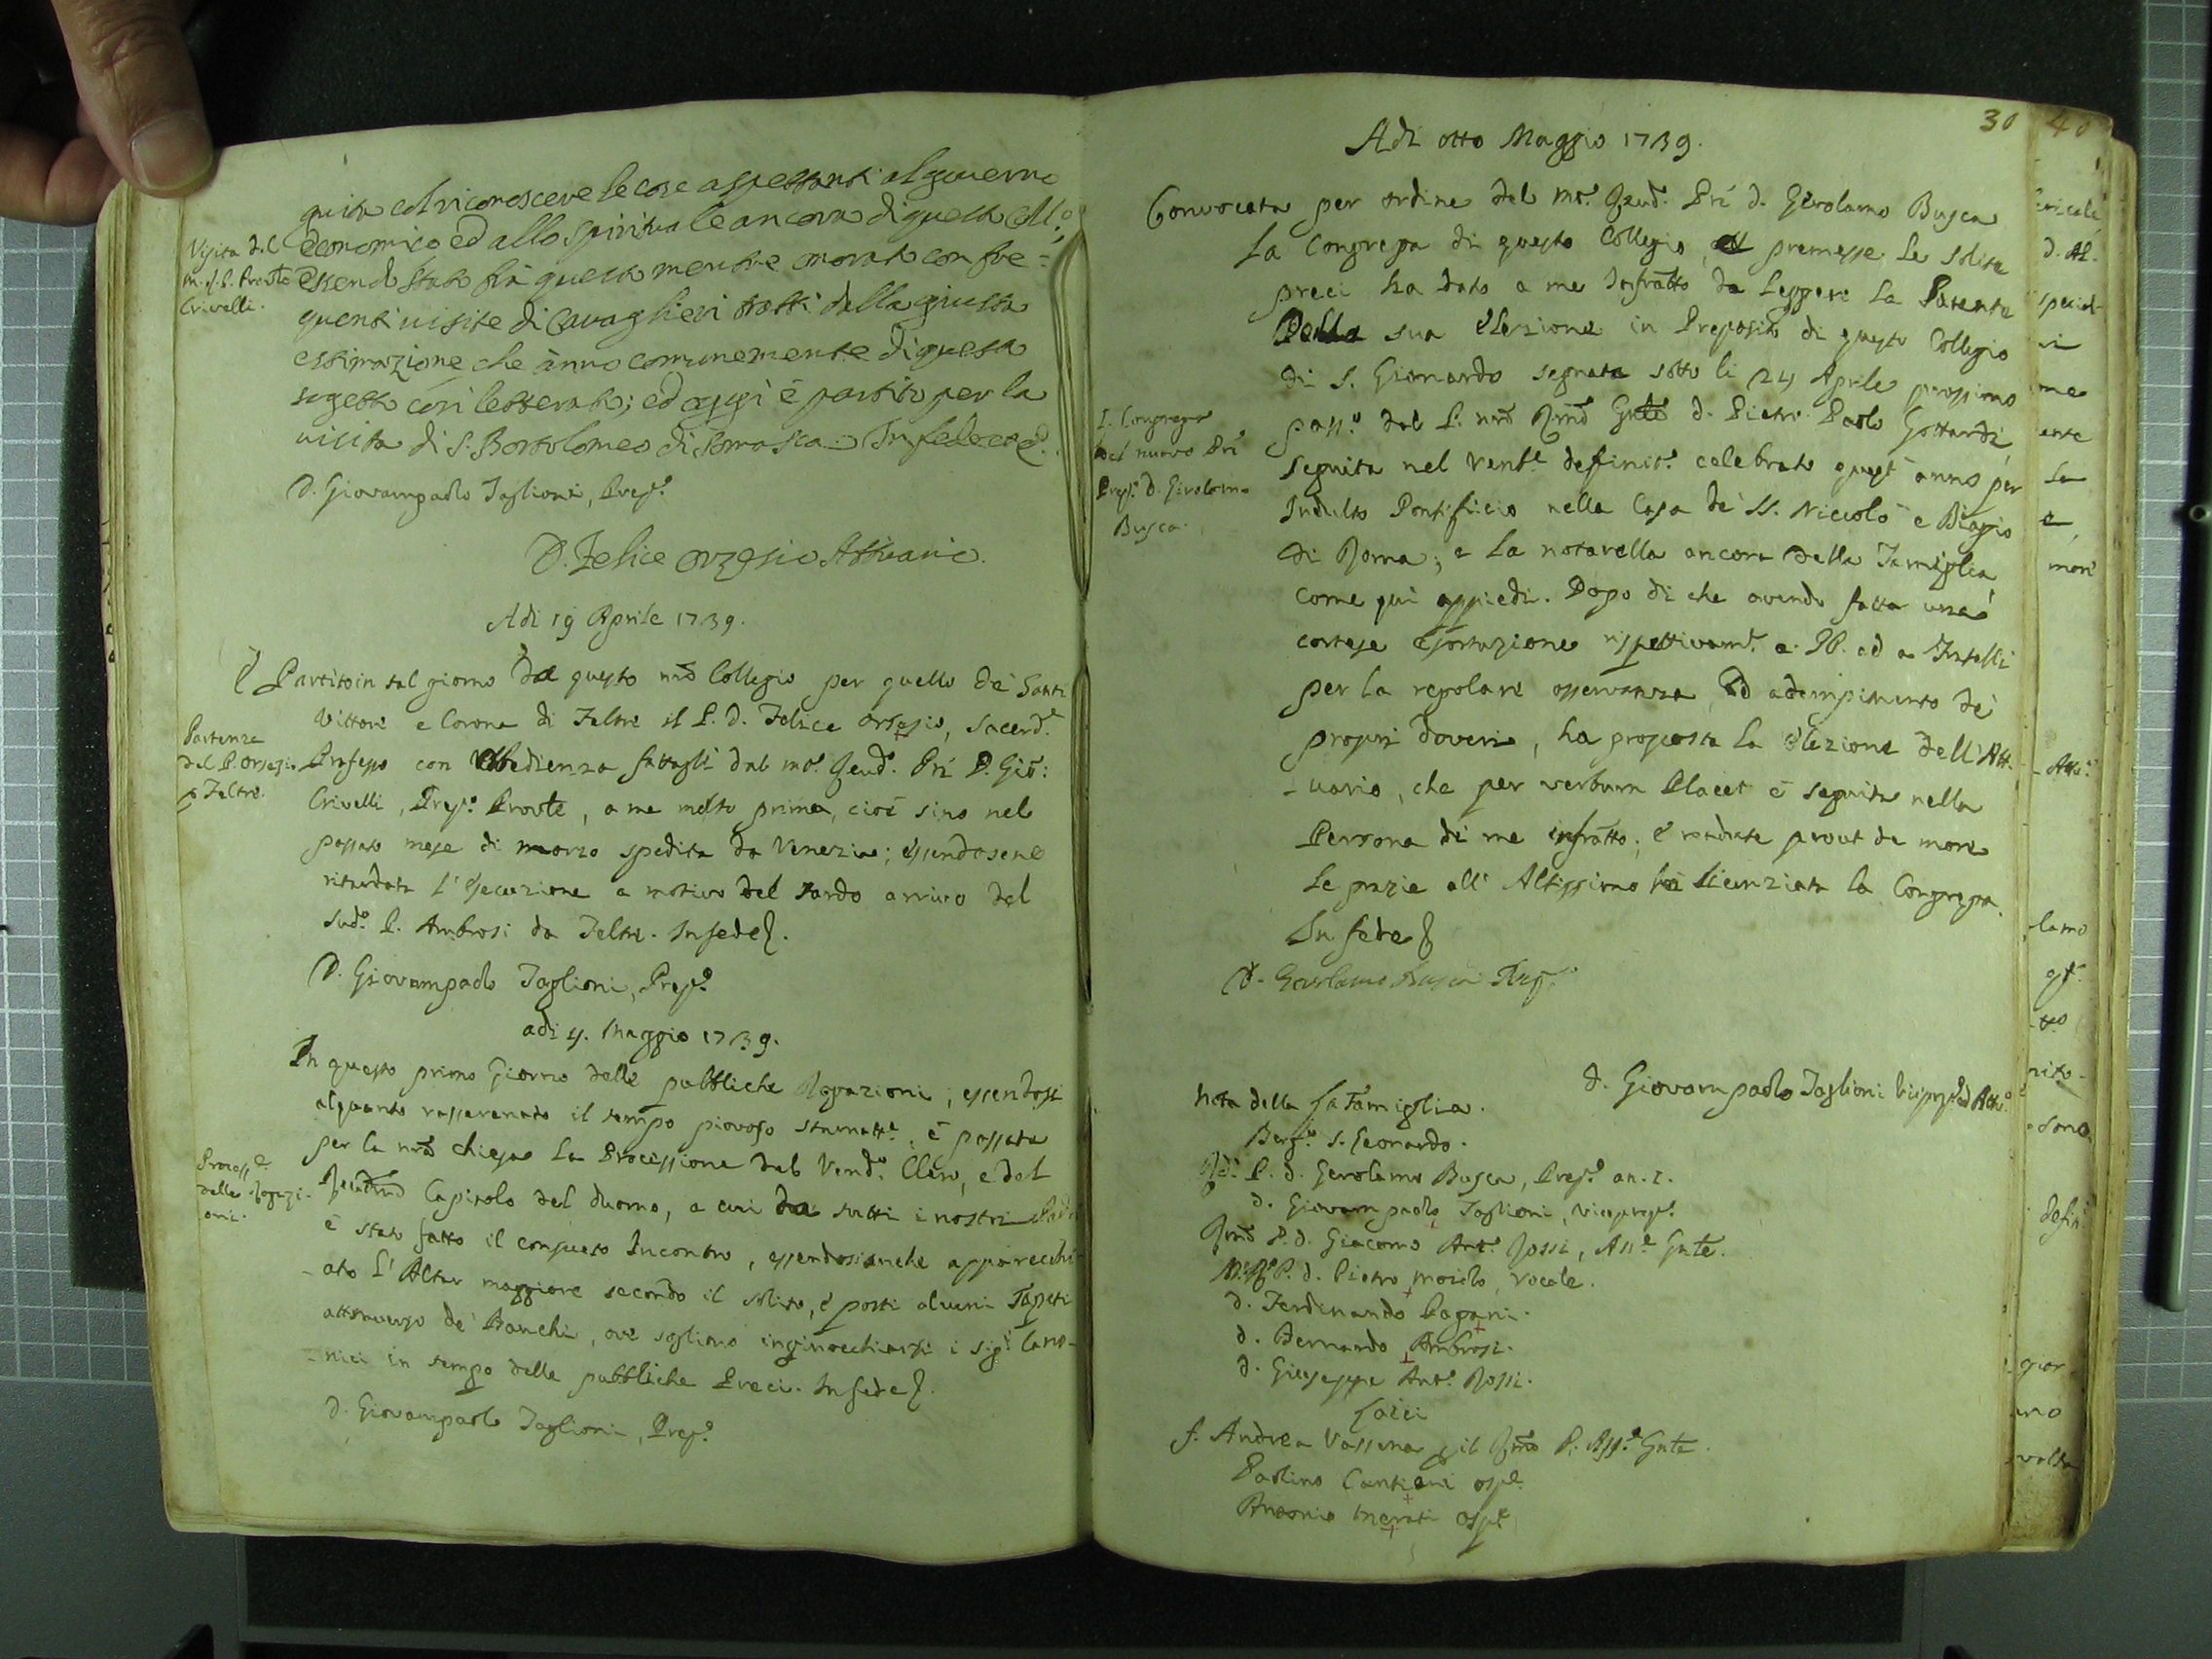 guita col riconoscere le cose aspettanti al governo
economico ed allo spirituale ancora di questo Coll.o;
essendo stato frà questo mentre onorato con fre=
quenti visite di Cavaglieri tratti dalla giusta
estimazione che ànno comunemente di questo
sogetto così letterato; ed oggi è partito per la
visita di S. Bortolomeo di Somasca. In fede
Visita del
m. r. P. Provle
Crivelli.
D. Giovampaolo Taglioni, Prep.o
D. Felice Orzesio Attuario.
Adi 19 Aprile 1739.
È Partito in tal giorno da questo nrō Collegio per quello de' Santi
Vittore e Corona di Feltre il P. D. Felice Orsesio, Sacerd.e
Professo con Obbedienza fattagli dal mo. Reud. Prē D. Giō:
Crivelli, Prep.o Provle, a me molto prima, cioè sino nel
passato mese di marzo spedita da Venezia; essendosene
ritardata l'esecuzione a motivo del tardo arrivo del
sud.o P. Ambrosi da Feltre. In fede
Partenza
del P. Orsesio
p Feltre.
D. Giovampaolo Taglioni, Prep.o
adi 4. Maggio 1739.
In questo primo Giorno delle pubbliche Rogazioni; essendosi
alquanto rasserenato il tempo piovoso è passata
per la nrā chiesa la Processione del Vend.o Clero, e del
Reudmō Capitolo del duomo, a cui da tutti i nostri Padri
è stato fatto il consueto Incontro, essendosi anche apparecchi-
-ato l'Altar maggiore secondo il solito, e posti alcuni Tapeti
attraverso de' Banchi, ove sogliono inginocchiarsi i sig.i Cano-
-nici in tempo delle pubbliche Preci. In fede
Process.e
delle Rogazi-
oni.
D. Giovampaolo Taglioni, Prep.o
30
40
Adi otto Maggio 1739.
Convocata per ordine del mo. Reud. Prē d. Girolamo Busca
la Congrega di questo Collegio, premesse le solite
preci ha dato a me Infratto da leggere la Patente
Della sua elezione in Preposito di questo Collegio
di S. Gionardo segnata sotto li 24 Aprile prossimo
pass.o dal P. nrō Rmō Gnle d. Pietro Paolo Gottardi,
seguita nel Venble definit.o celebrato quest'anno per
Indulto Pontificio nella Casa de' SS. Niccolò e Biagio
di Roma; e la notarella ancora della Famiglia
come qui appiedi. Dopo di che avendo fatta una
cortese esortazione rispettivam.e a' PP. ed a Fratelli
per la regolare osservanza, ed adempimento de'
proprj doveri, ha proposta la elezione dell'Att-
-uario, che per verbum Placet è seguita nella
Persona di me infratto; e rendute prout de more
le grazie all'Altissimo ha licenziata la Congrega.
In fede
I. Congrega
del nuovo Prē
Prep.o D. Girolamo
Busca.
D. Girolamo Busca Prep.o
d. Giovampaolo Taglioni Viceprep.o ed Att.o
Nota della Famiglia.
Berg.o S. Leonardo.
P. d. Gerolamo Busca, Prep.o an. I.
d. Giovampaolo Taglioni, Viceprep.o
Rmō P. d. Giacomo Ant.o Rossi, Ass.e Gnle.
M. R. P. d. Pietro vocale.
d. Ferdinando Pagani.
d. Bernardo Ambrosi.
d. Giuseppe Ant.o Rossi.
Laici
f. Andrea Vassena p il Rmō P. Ass.e Gnle.
Paolino Cantieni osp.e
Antonio osp.e